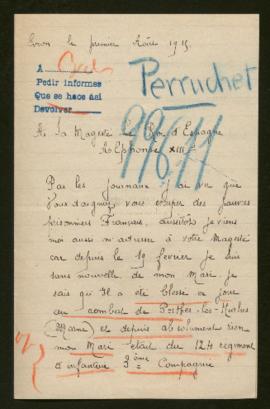 Lyon le premier Août 1915.
A
Pedir informes
Que se hace así
Devolver
Perruchet
99611
A La Majesté le Roi d'Espagne
Alphonse XIII
Par les journaux j'ai vu que
vous daignez vous occuper des pauvres
prisonniers Français, aussitôt je viens
moi aussi m'adresser à votre Majesté
car depuis le 19 février je suis
sans nouvelle de mon Mari je
sais qu'Il a été blessé ce jour
au combat de Perthes-les-Hurlus
(Marne) et depuis absolument rien
mon Mari était du 124 régiment
d'infanterie 3ème Compagnie